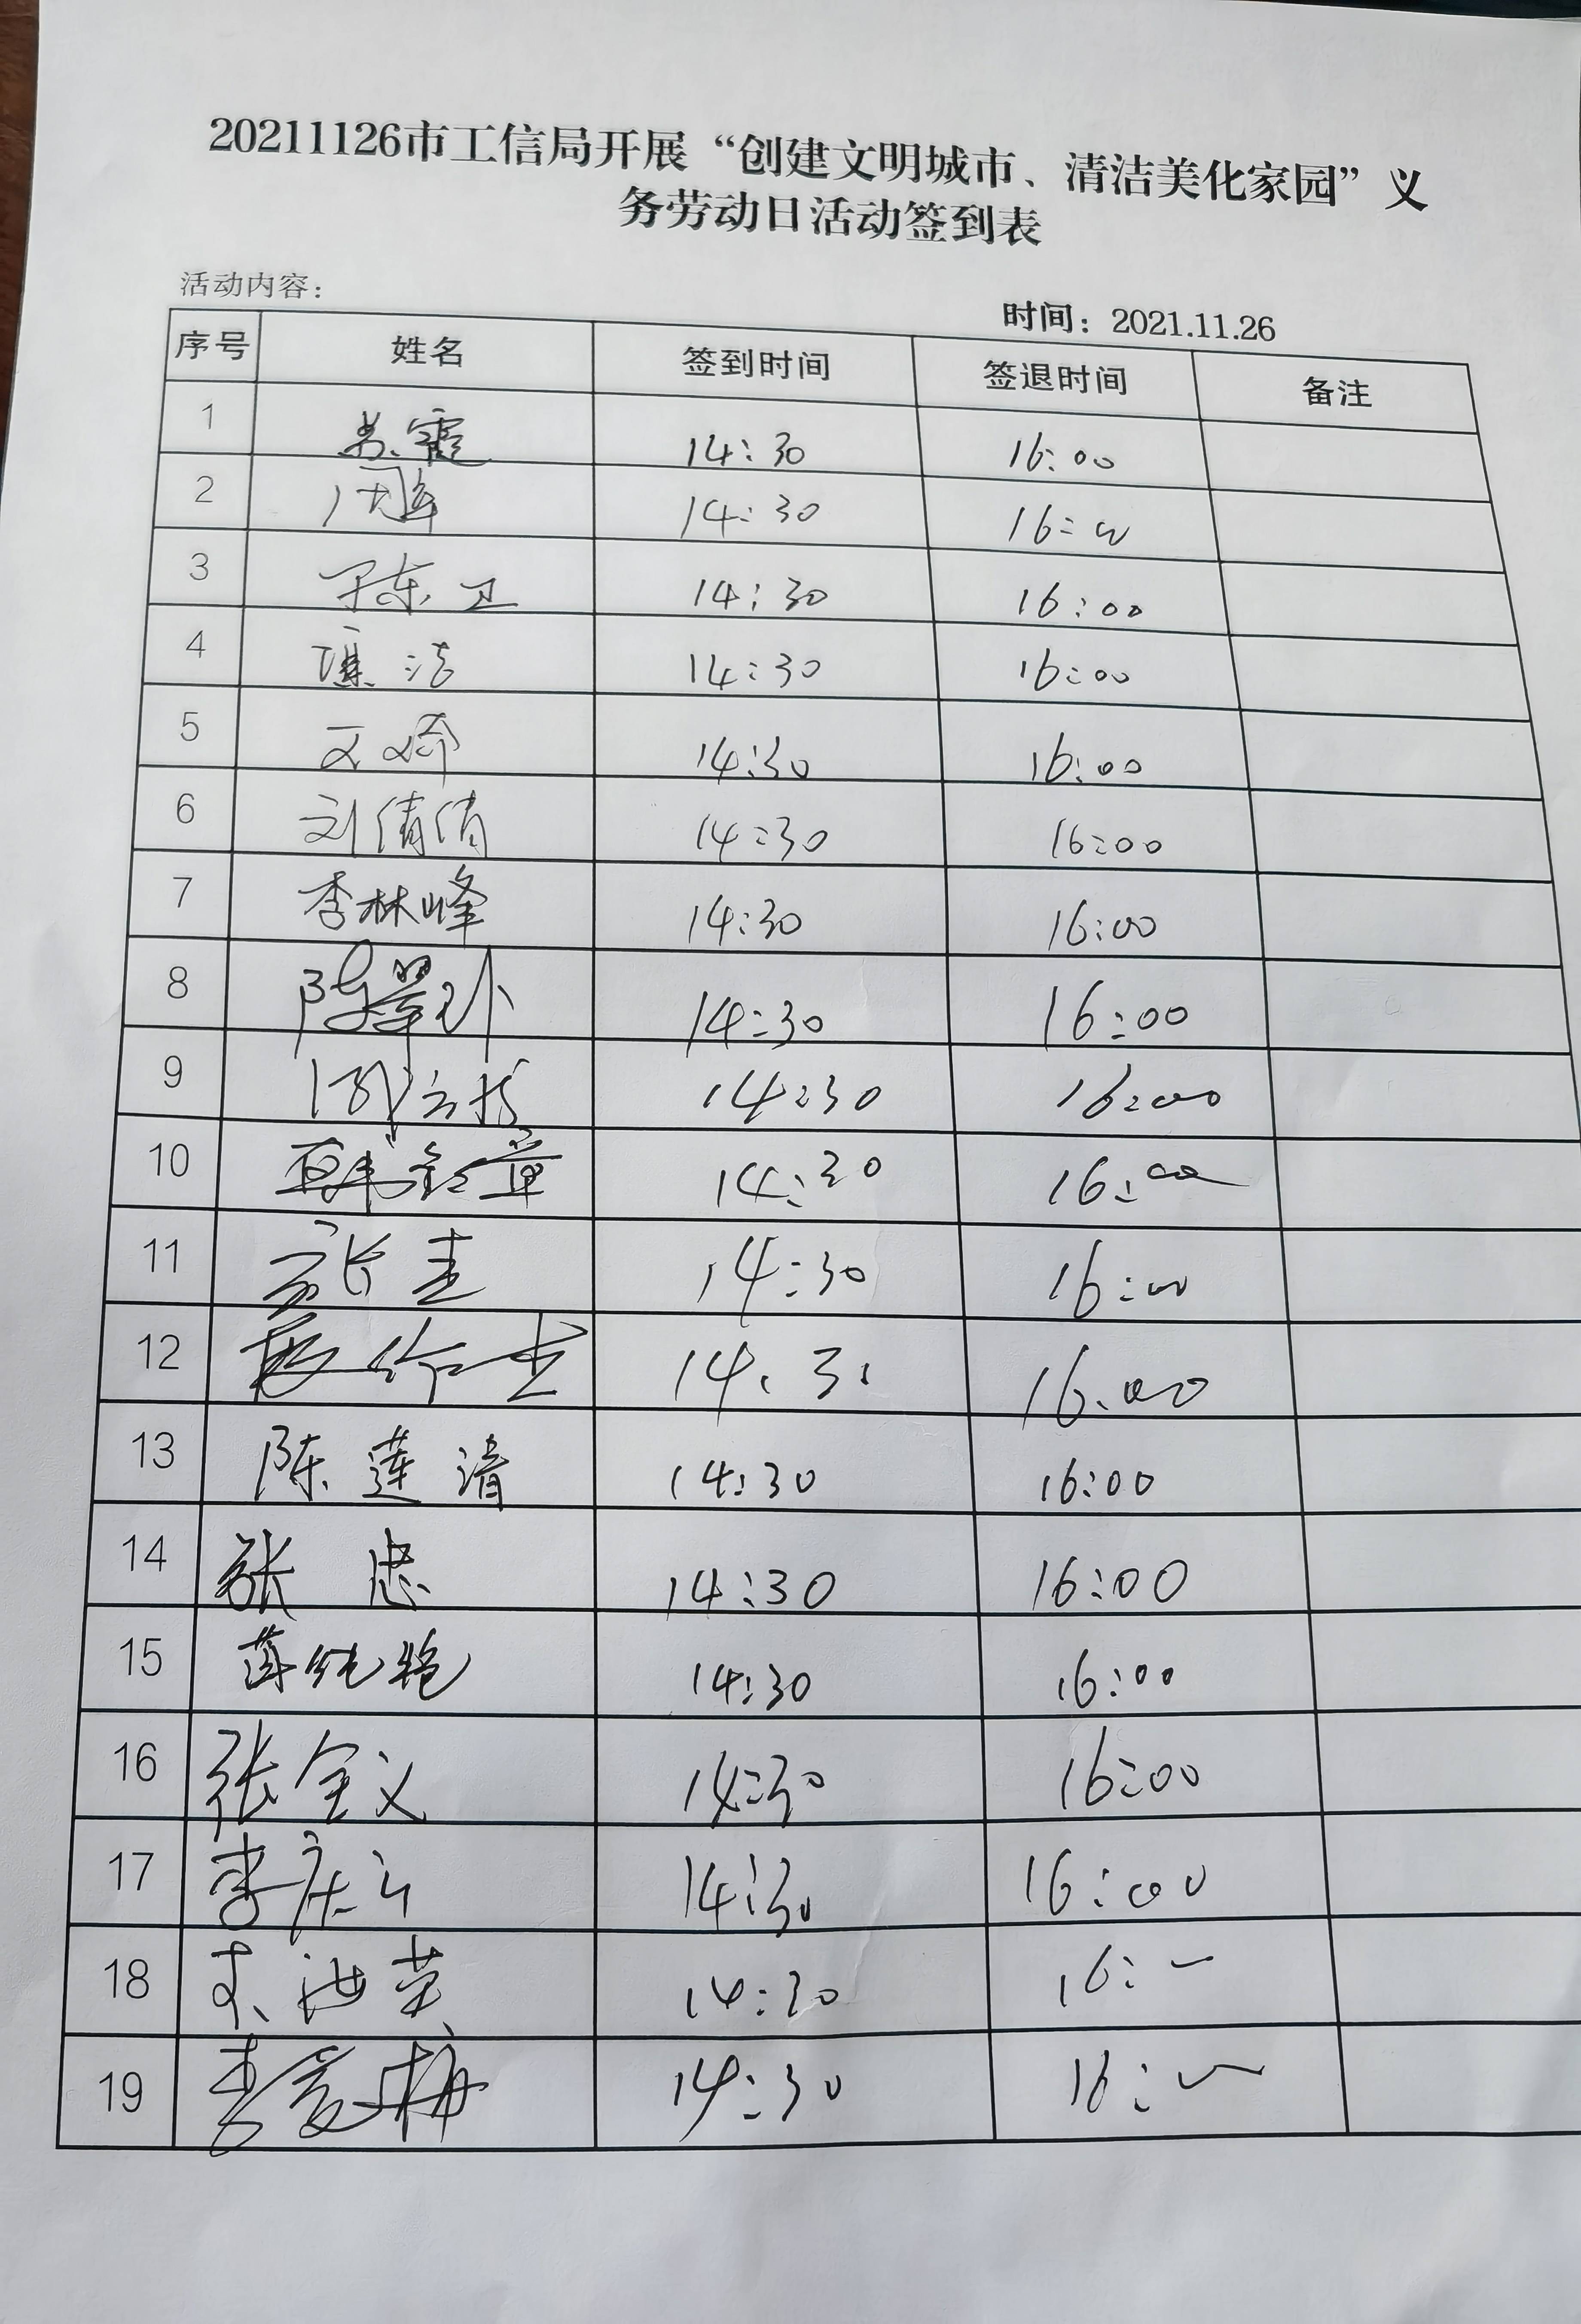 20211126市工信局开展“创建文明城市、清洁美化家园”义
务劳动日活动签到表
活动内容：
时间：2021.11.26
序号 姓名 签到时间 签退时间 备注
1 苏霞 14:30 16:00
2 14:30 16:00
3 于东卫 14:30 16:00
4 谯洁 14:30 16:00
5 王婷 14:30 16:00
6 刘倩倩 14:30 16:00
7 李林峰 14:30 16:00
8 陈翠玲 14:30 16:00
9 14:30 16:00
10 韩彩章 14:30 16:00
11 张圭 14:30 16:00
12 14:30 16:00
13 陈莲清 14:30 16:00
14 张忠 14:30 16:00
15 薛纯艳 14:30 16:00
16 张全义 14:30 16:00
17 李庆云 14:30 16:00
18 14:30 16:
19 李爱梅 14:30 16: